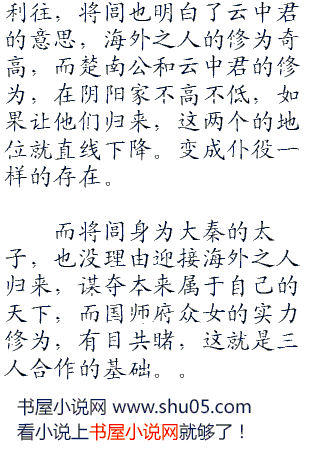 利往，将闾也明白了云中君
的意思，海外之人的修为奇
高，而楚南公和云中君的修
为，在阴阳家不高不低，如
果让他们归来，这两个的地
位就直线下降。变成仆役一
样的存在。
而将闾身为大秦的太
子，也没理由迎接海外之人
归来，谋夺本来属于自己的
天下，而国师府众女的实力
修为，有目共睹，这就是三
人合作的基础。。
书屋小说网 www.shu05.com
看小说上书屋小说网就够了！